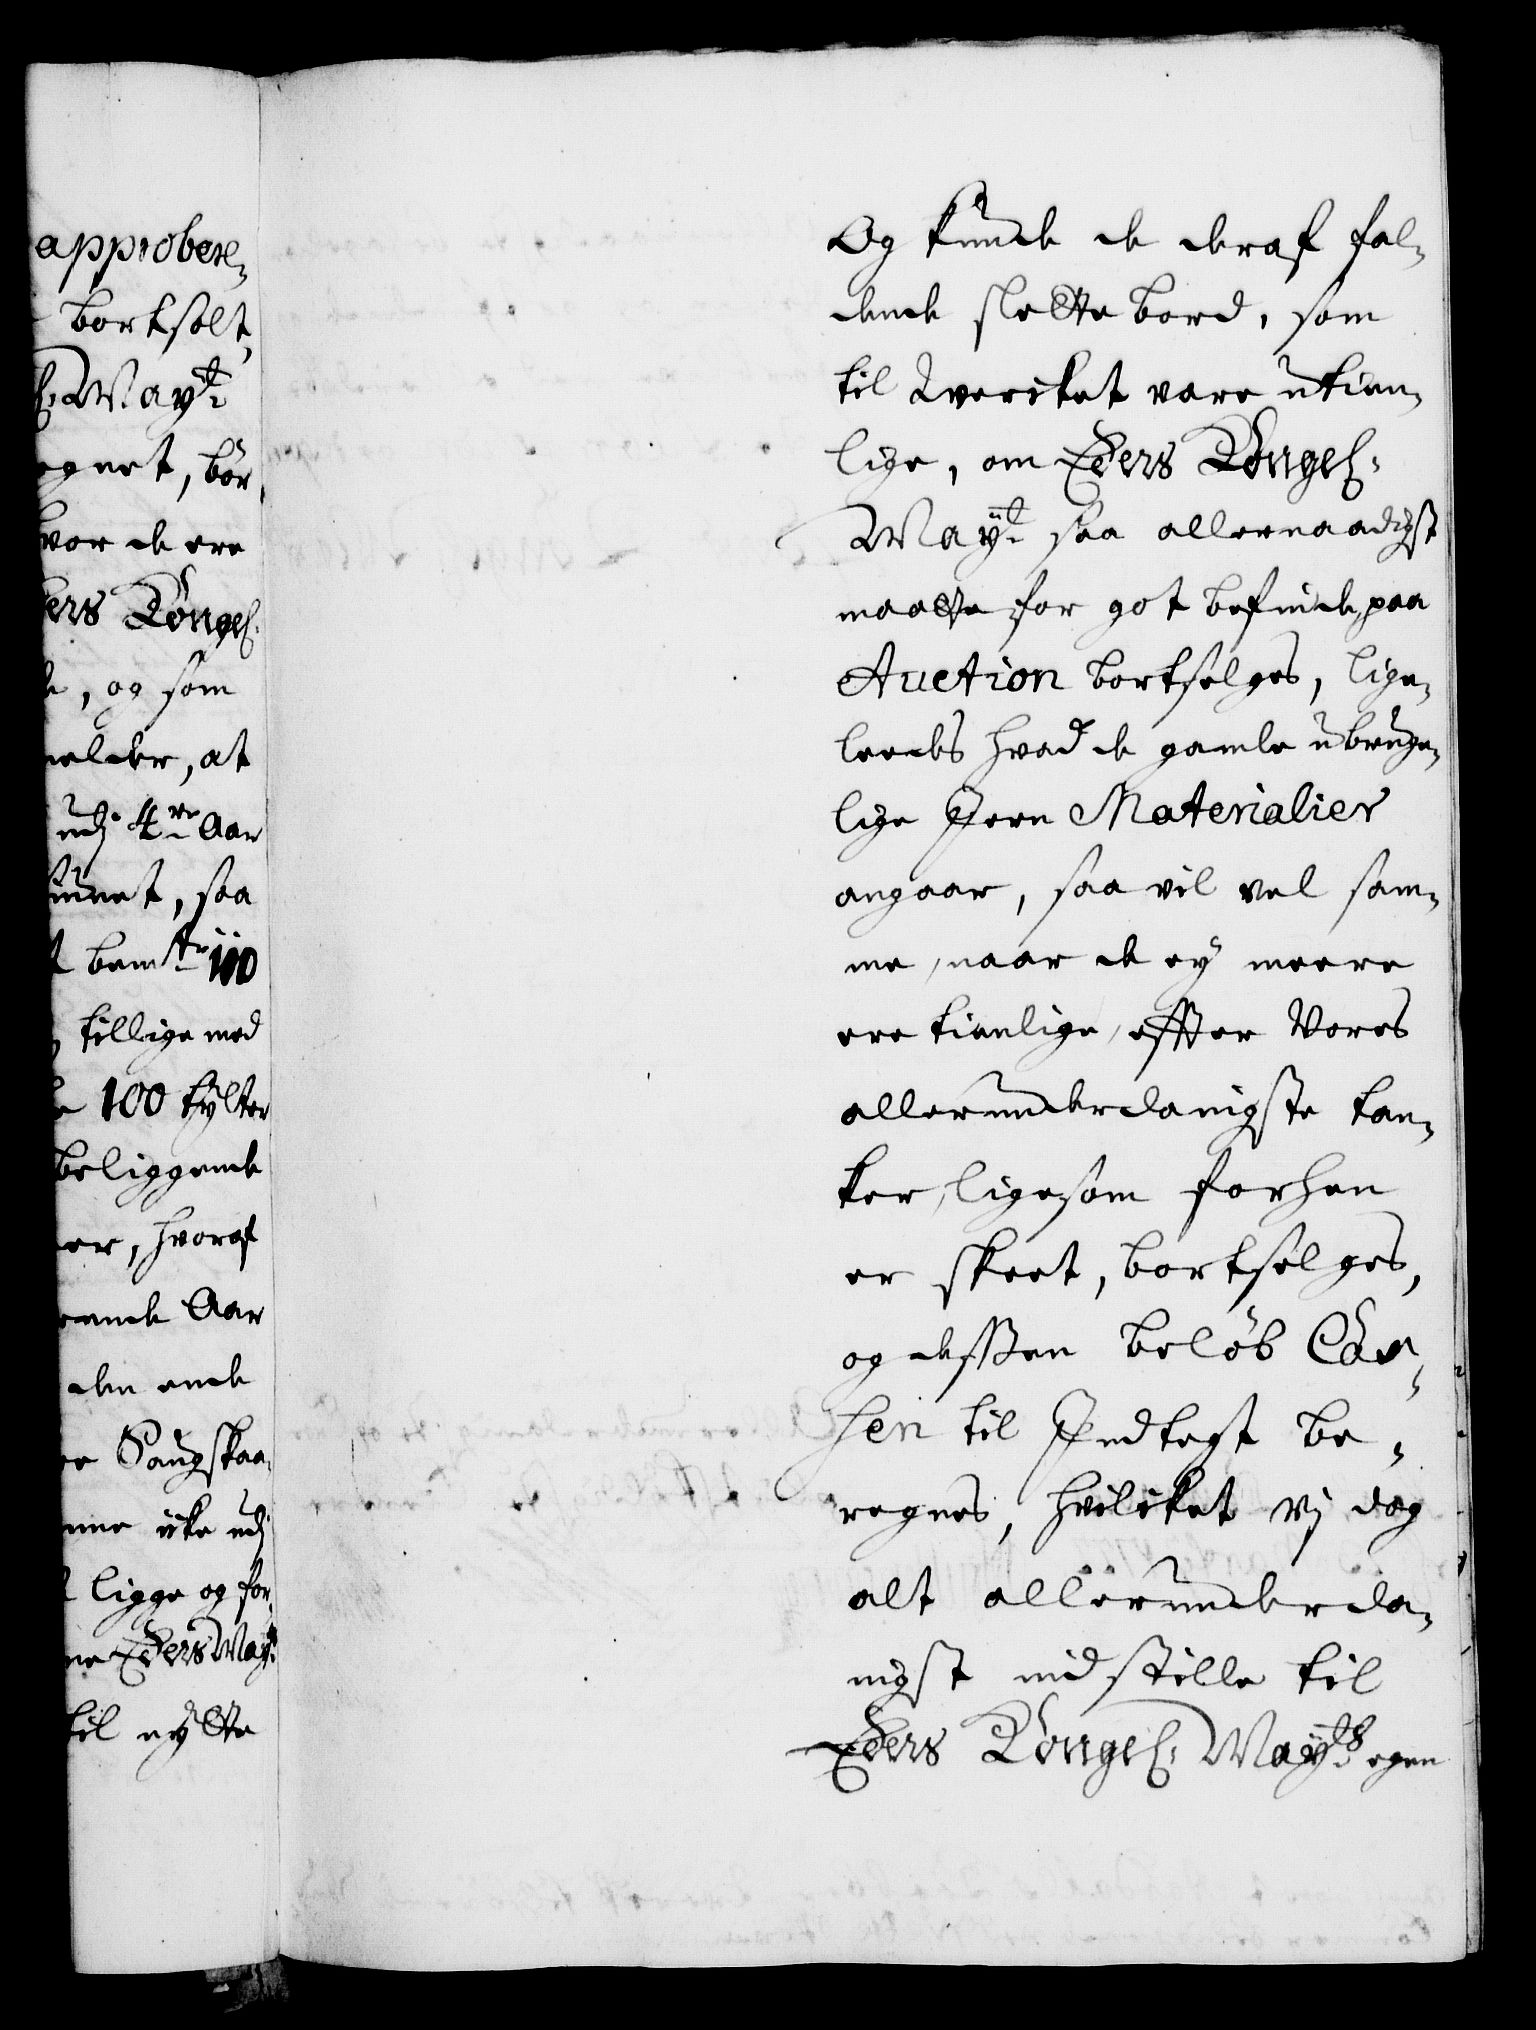 approbere-
bortsolt,
l: Mayt:
egnet, bör,
hvor de ere
ders Kongel:
e, og som
melder, at
udj 4re Aar
iunet, saa
t bemte 110
tillige med
e 100 tylter
beliggende
er, hvoraf
rende Aar
den ende
re Saugskaa-
nne icke udj
t ligge og for-
ne Eders Mayt:
til nytte
Og kunde de deraf fal-
dende slette bord, som
til Wercket vare utien-
lige, om Eders Kongel:
Mayt: saa allernaadigst
maatte for got befinde, paa
Auction bortselges, lige-
leeds hvad de gamle ubruge-
lige Jern Materialier
angaar, saa vil vel sam-
me, naar de ey meere
ere tienlige, effter Vores
allerunderdanigste tan-
ker, ligesom forhen
er skeet, bortselges,
og dessen beløb Cas-
sen til Indtegt be-
regnes, hvilcket vj dog
alt allerunderda-
nigst indstille til
Eders Kongel: Mayts: egen